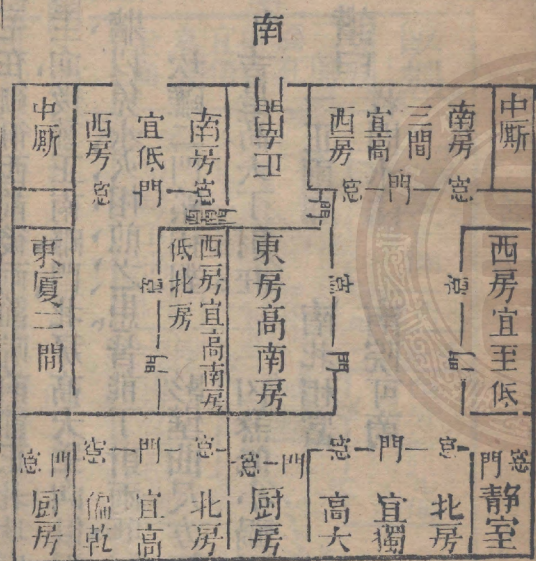 南
中廝
南房
三間
宜高
西房
窓
門
窓
門
南房
宜低
西房
窓
門
窓
中廝
西房宜至低
門
門
東房高南房
西房宜高南房
低北房
門
東廈二間
窓
門
靜室
窓
門
窓
北房
宜獨
高大
門
窓
厨房
窓
門
窓
北房
宜高
偏乾
門
窓
厨房